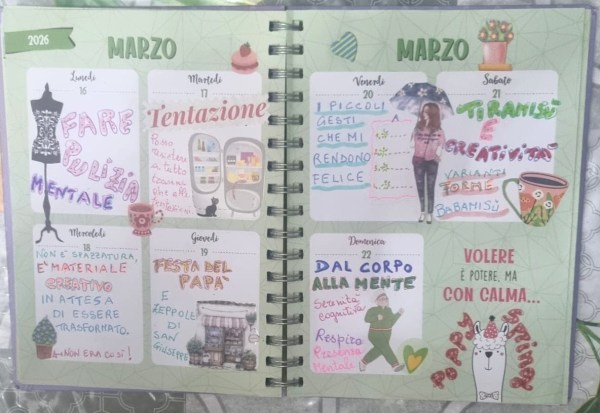 2026
MARZO
Lunedì
16
FARE
PULIZIA
MENTALE
Martedì
17
Tentazione
Posso
resistere
a tutto
tranne
che alle
tentazioni
Mercoledì
18
NON È SPAZZATURA,
E' MATERIALE
CREATIVO
IN ATTESA
DI ESSERE
TRASFORMATO.
NON ERA COSÌ!
Giovedì
19
FESTA DEL
PAPÀ
E
ZEPPOLE
DI
SAN
GIUSEPPE
MARZO
Venerdì
20
I PICCOLI
GESTI
CHE MI
RENDONO
FELICE
Sabato
21
TIRAMISÙ
E
CREATIVITÀ
VARIANTI
FORME
BABAMISÙ
Domenica
22
DAL CORPO
ALLA MENTE
Serenità
cognitiva
Respiro
Presenza
Mentale
VOLERE
È POTERE, MA
CON CALMA...
POPPY
SPRING